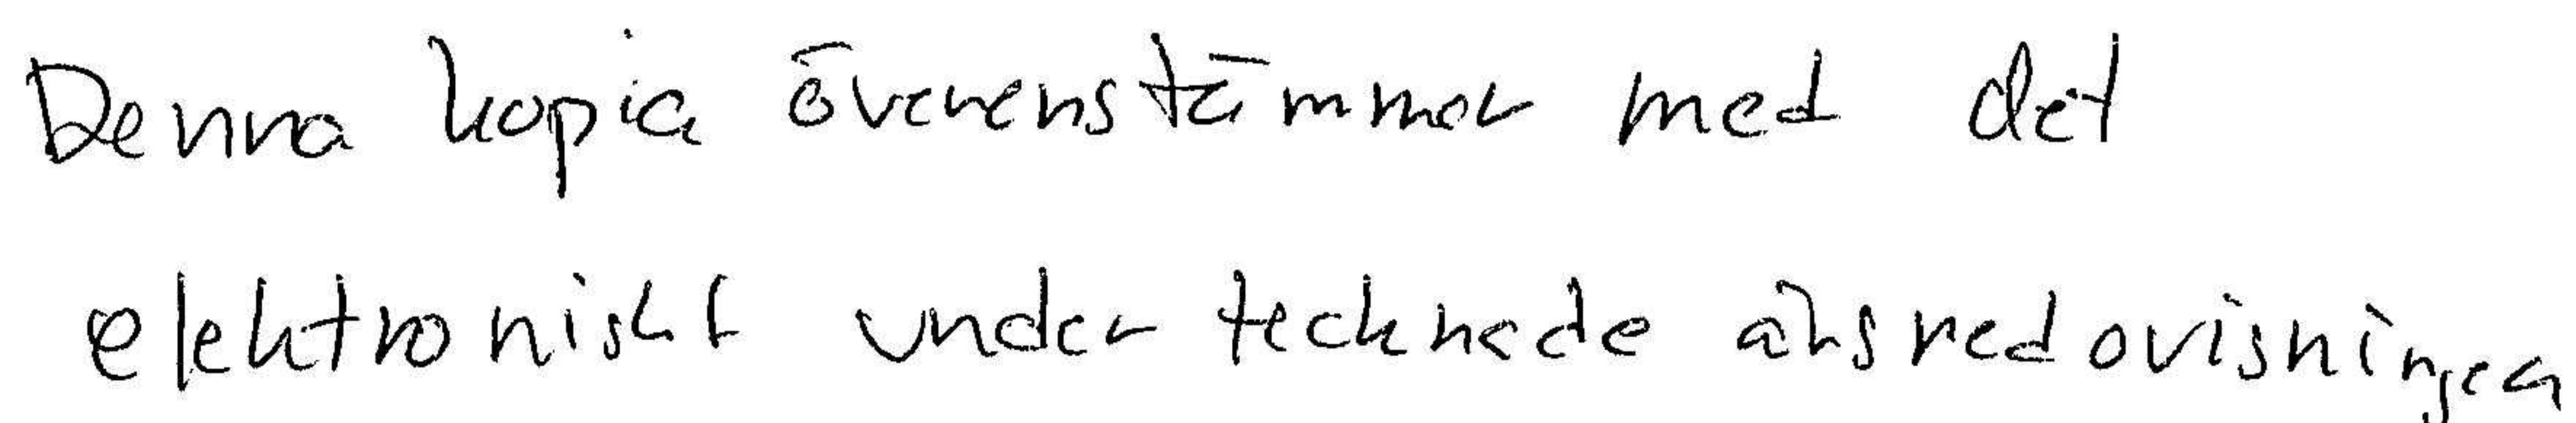 Denna kopia överenstämmer med det
elektroniskt undertecknade årsredovisningen